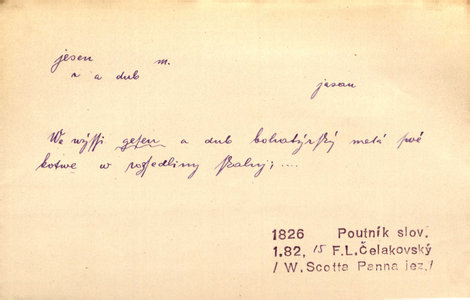 jesen m.
r a dub
jasan
We wýssi gesen a dub bohatýrský metá své
kotwe w rozsedliny skalný; ....
1826 Poutník slov.
1.82, 15 F.L.Čelakovský
/W.Scotta Panna jez./